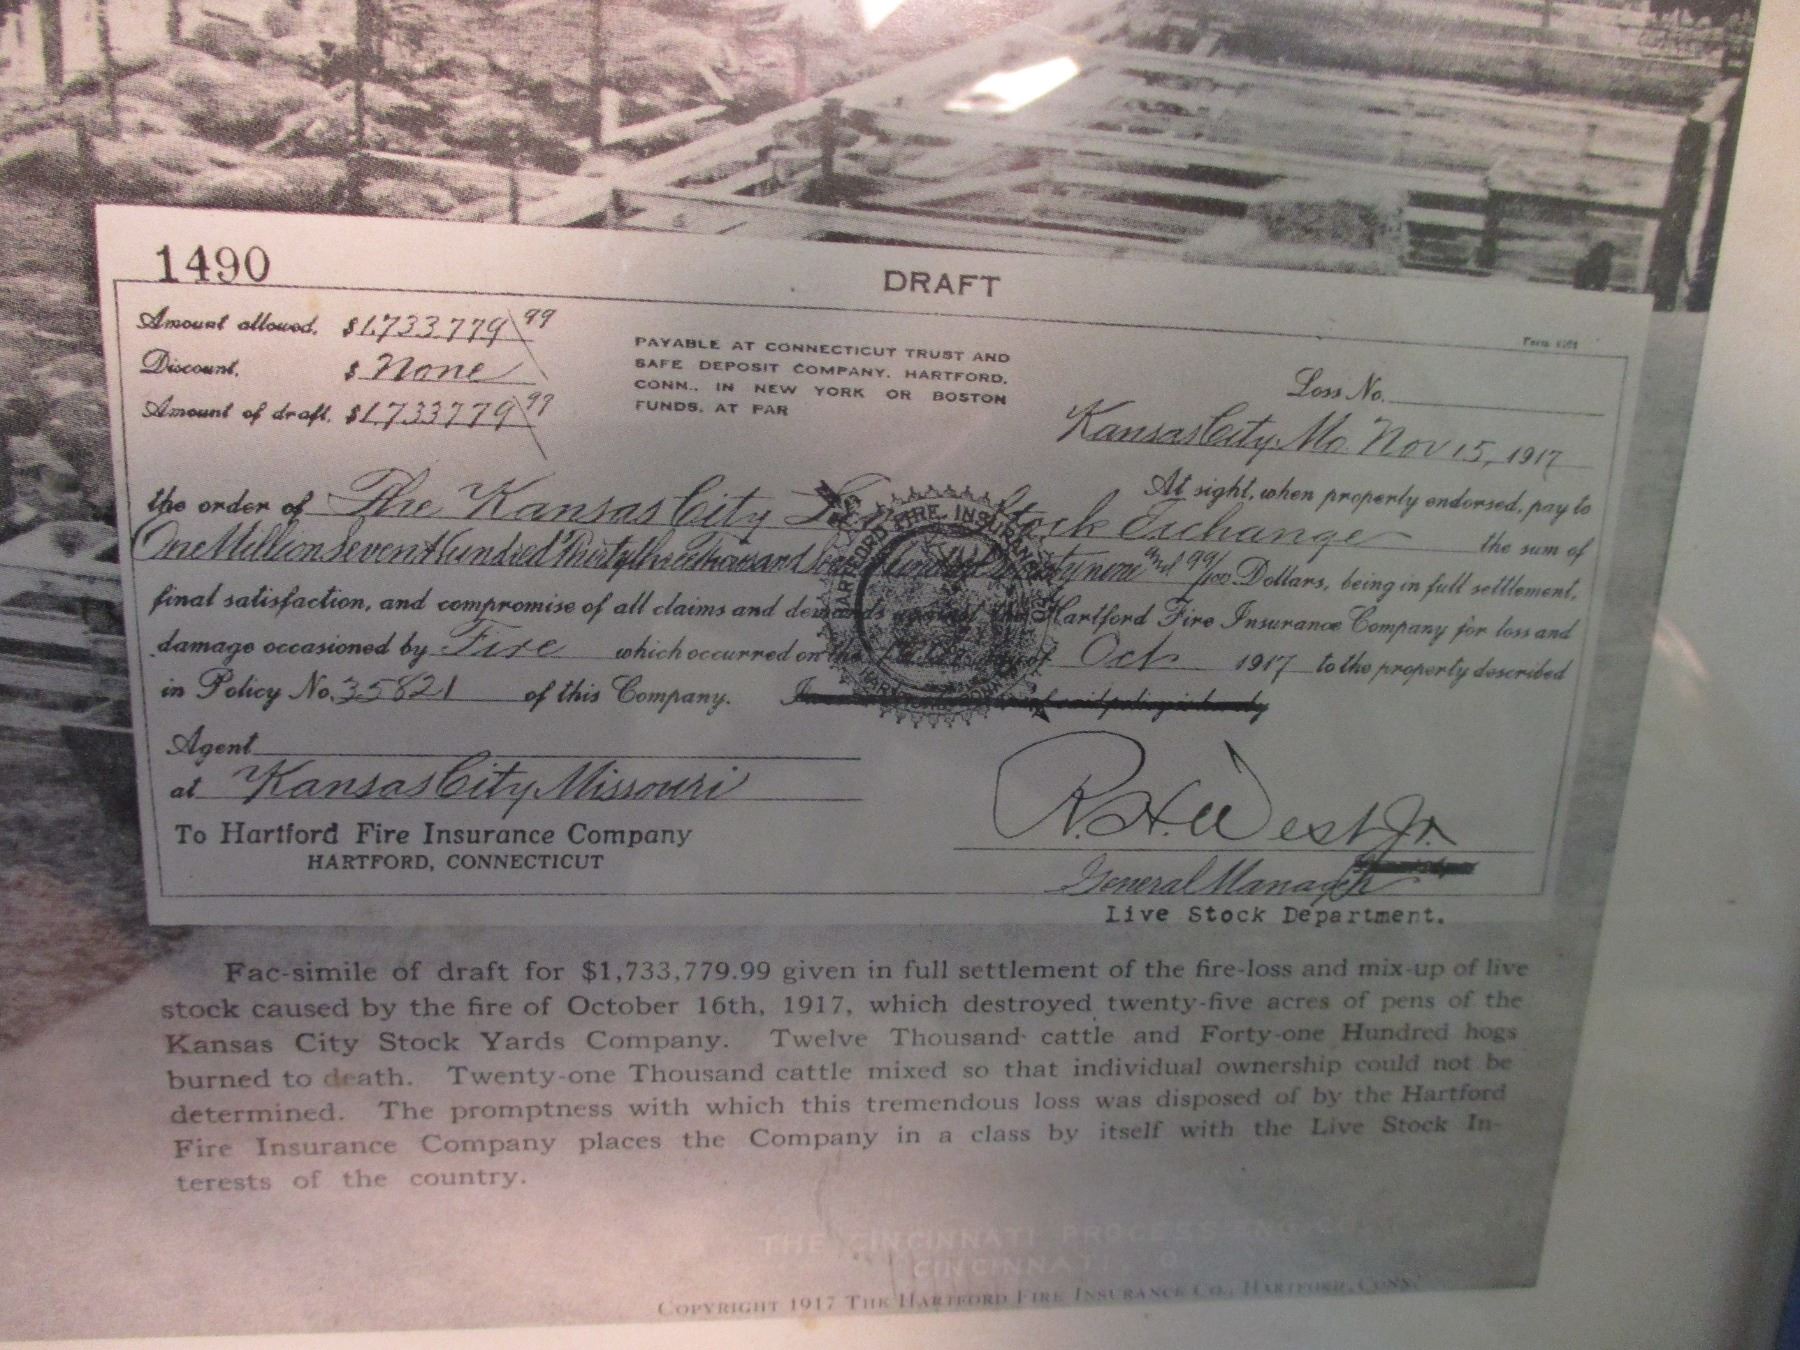 1490
DRAFT
Amount allowed. $1,733,779 99
Discount. $ None
Amount of draft. $1,733779 99
PAYABLE AT CONNECTICUT TRUST AND
SAFE DEPOSIT COMPANY, HARTFORD,
CONN., IN NEW YORK OR BOSTON
FUNDS, AT PAR
Loss No.
Kansas City, Mo. Nov 15, 1917
At sight, when properly endorsed, pay to
the order of The Kansas City Stock Exchange the sum of
One Million Seven Hundred Thirty three thousand nine and 99/100 Dollars, being in full settlement,
final satisfaction, and compromise of all claims and demands against the Hartford Fire Insurance Company for loss and
damage occasioned by Fire which occurred on the day of Oct 1917 to the property described
in Policy No. 35821 of this Company.
HARTFORD FIRE INSURANCE
Agent
at Kansas City, Missouri
To Hartford Fire Insurance Company
HARTFORD, CONNECTICUT
R. H. West Jr.
General Manager
Live Stock Department.
Fac-simile of draft for $1,733,779.99 given in full settlement of the fire-loss and mix-up of live
stock caused by the fire of October 16th, 1917, which destroyed twenty-five acres of pens of the
Kansas City Stock Yards Company. Twelve Thousand cattle and Forty-one Hundred hogs
burned to death. Twenty-one Thousand cattle mixed so that individual ownership could not be
determined. The promptness with which this tremendous loss was disposed of by the Hartford
Fire Insurance Company places the Company in a class by itself with the Live Stock In-
terests of the country.
THE CINCINNATI PROCESS ENG. CO.
CINCINNATI, O.
COPYRIGHT 1917 THE HARTFORD FIRE INSURANCE CO., HARTFORD, CONN.